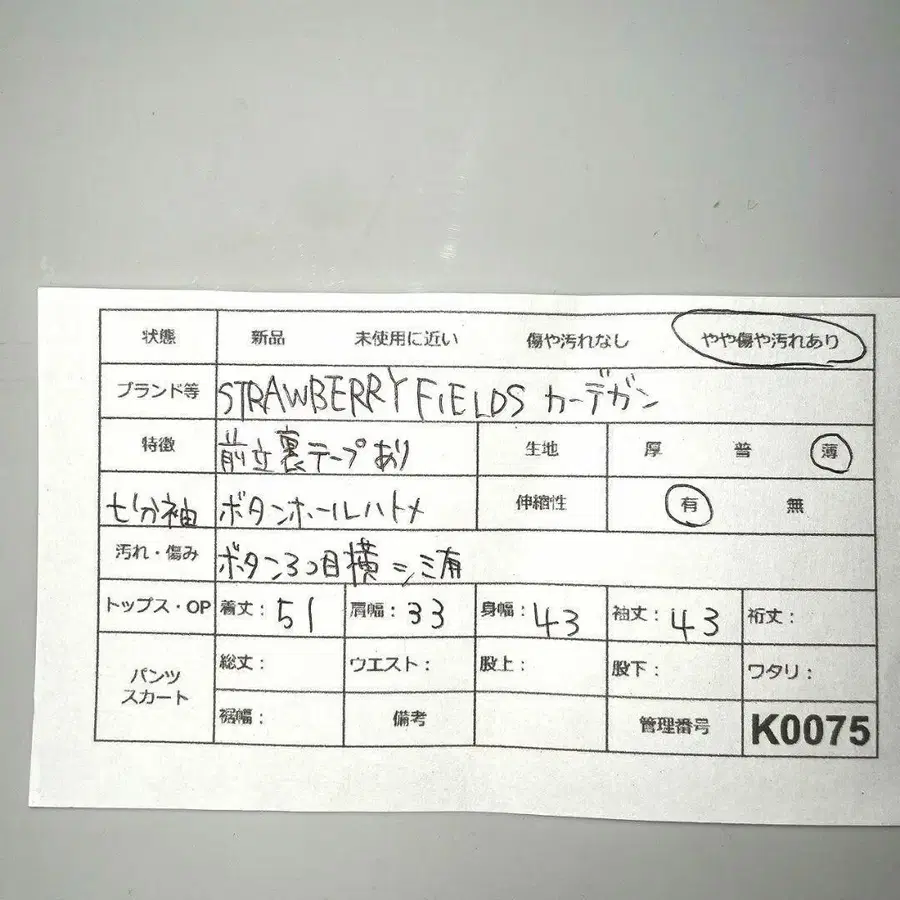 状態 新品 未使用に近い 傷や汚れなし やや傷や汚れあり
ブランド等 STRAWBERRY FIELDS カーデガン
特徴 前立裏テープあり 生地 厚 普 薄
七分袖 ボタンホールハトメ 伸縮性 有 無
汚れ・傷み ボタン3つ目横シミ有
トップス・OP 着丈: 51 肩幅: 33 身幅: 43 袖丈: 43 裄丈:
パンツ スカート 総丈: ウエスト: 股上: 股下: ワタリ:
裾幅: 備考 管理番号 K0075